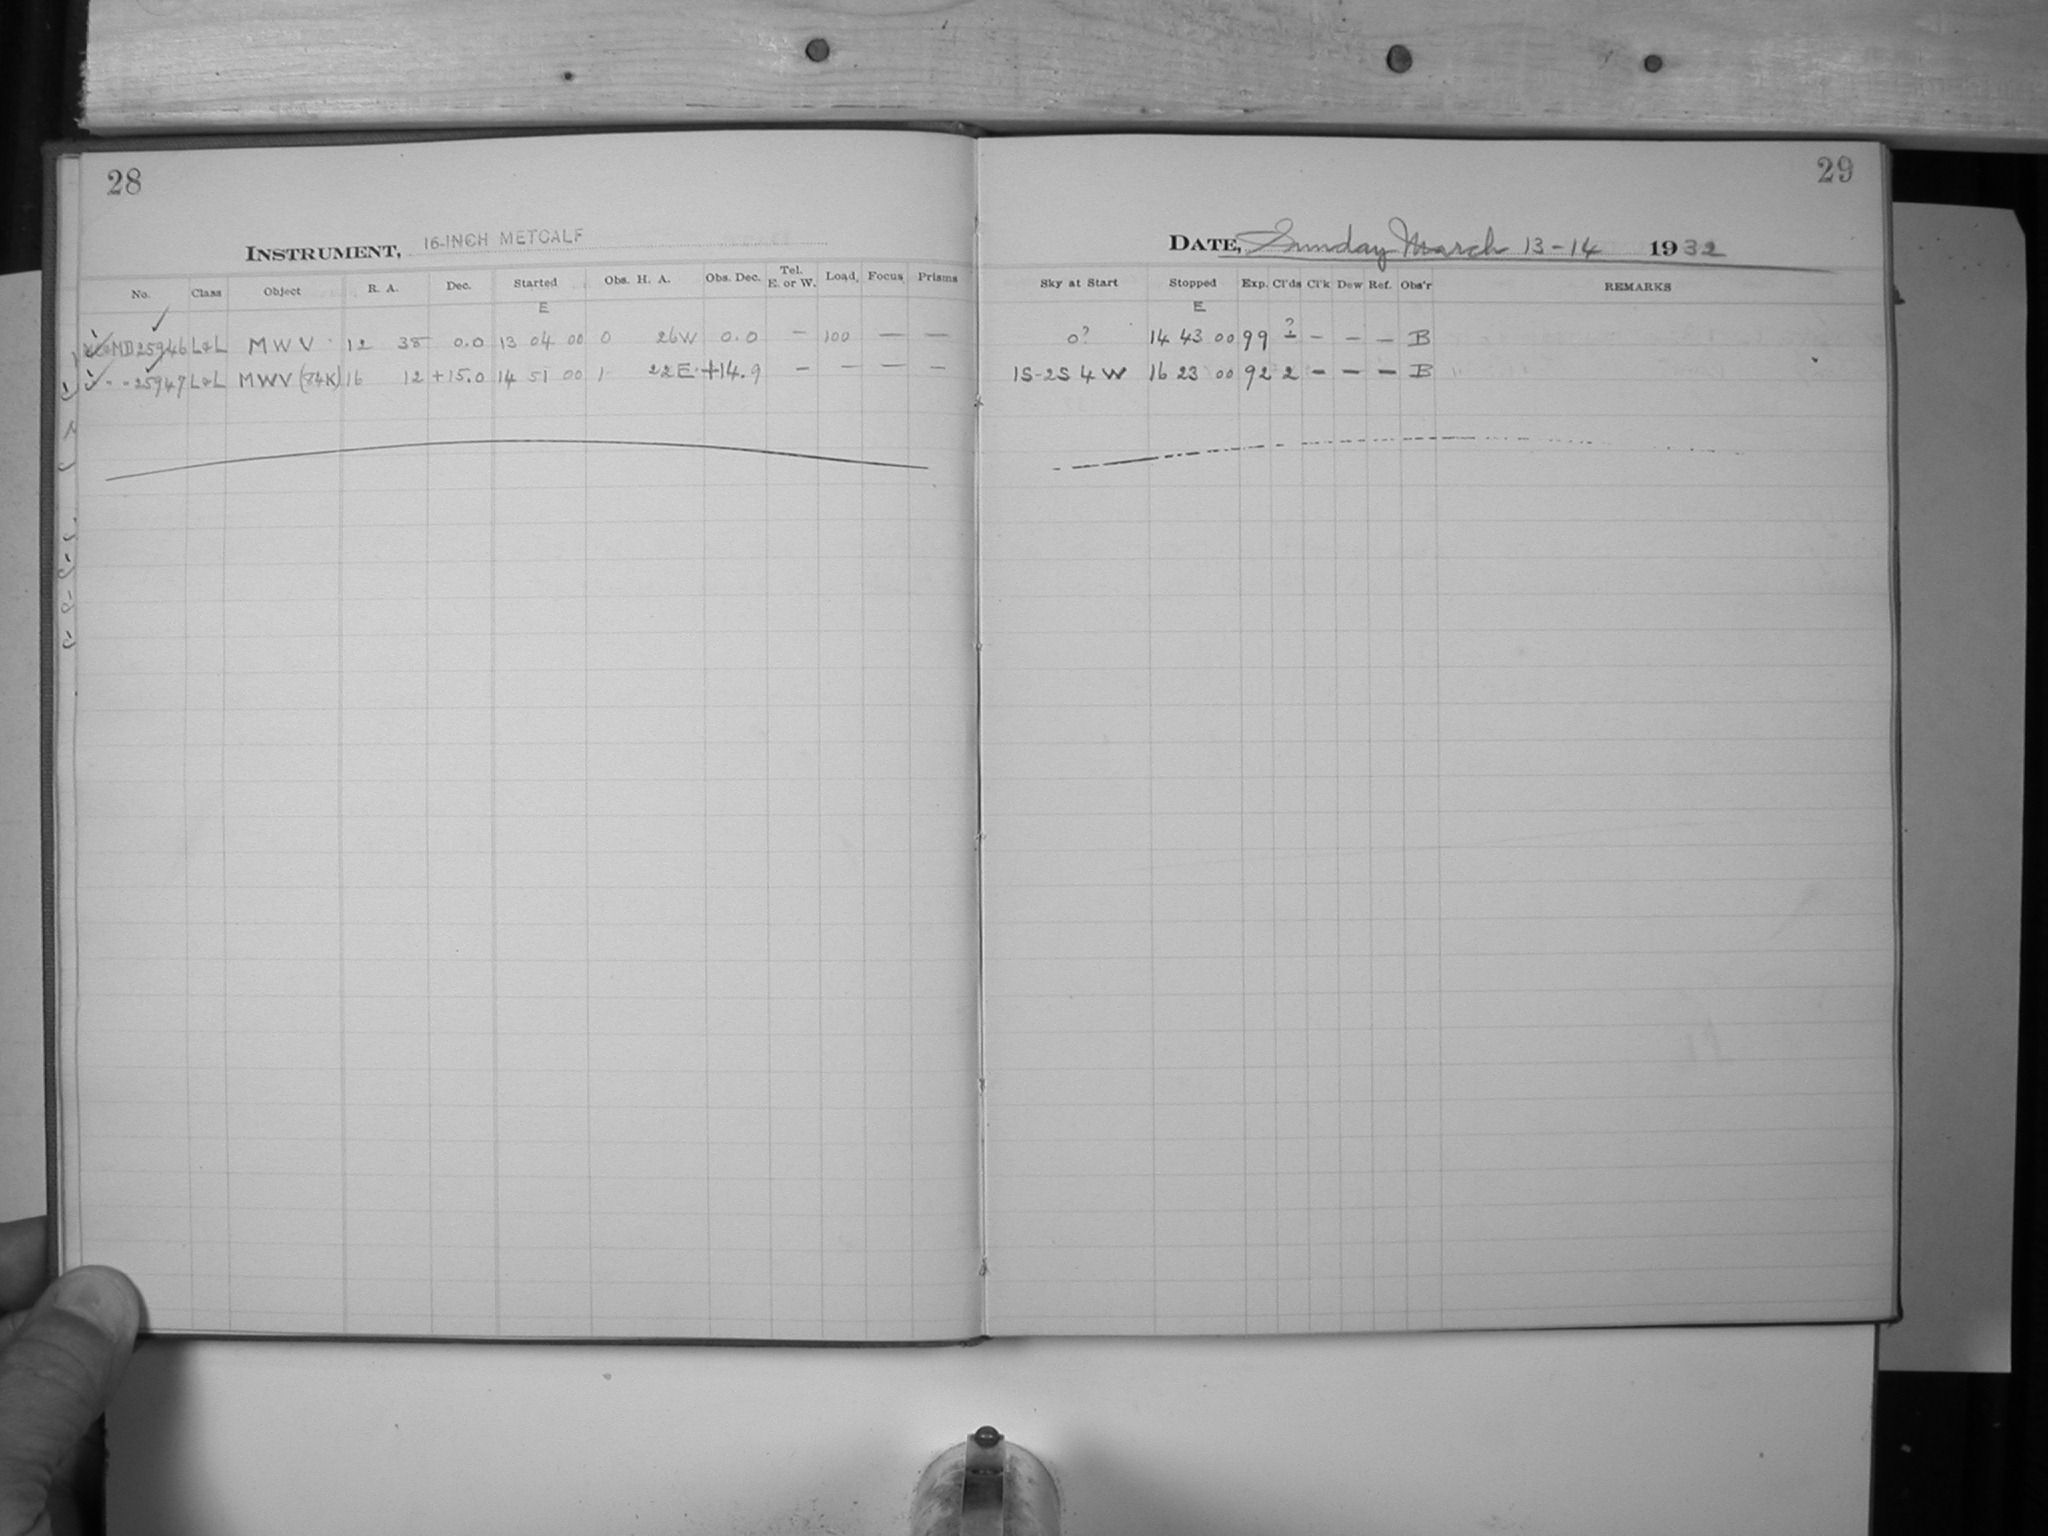 28
INSTRUMENT, 16-INCH METCALF
No. Class Object R. A. Dec. Started Obs. H. A. Obs. Dec. Tel. E. or W. Load, Focus Prisms
E
MD 25946 L&L MWV 12 38 0.0 13 04 00 0 26W 0.0 – 100 — —
" 25947 L&L MWV (74K) 16 12 +15.0 14 51 00 1 22E +14.9 – – — –
29
DATE, Sunday March 13-14 1932
Sky at Start Stopped Exp. Cl'ds Cl'k Dew Ref. Obs'r REMARKS
E
0? 14 43 00 99 ? – – – – B
1S-2S 4W 16 23 00 92 2 – – – B